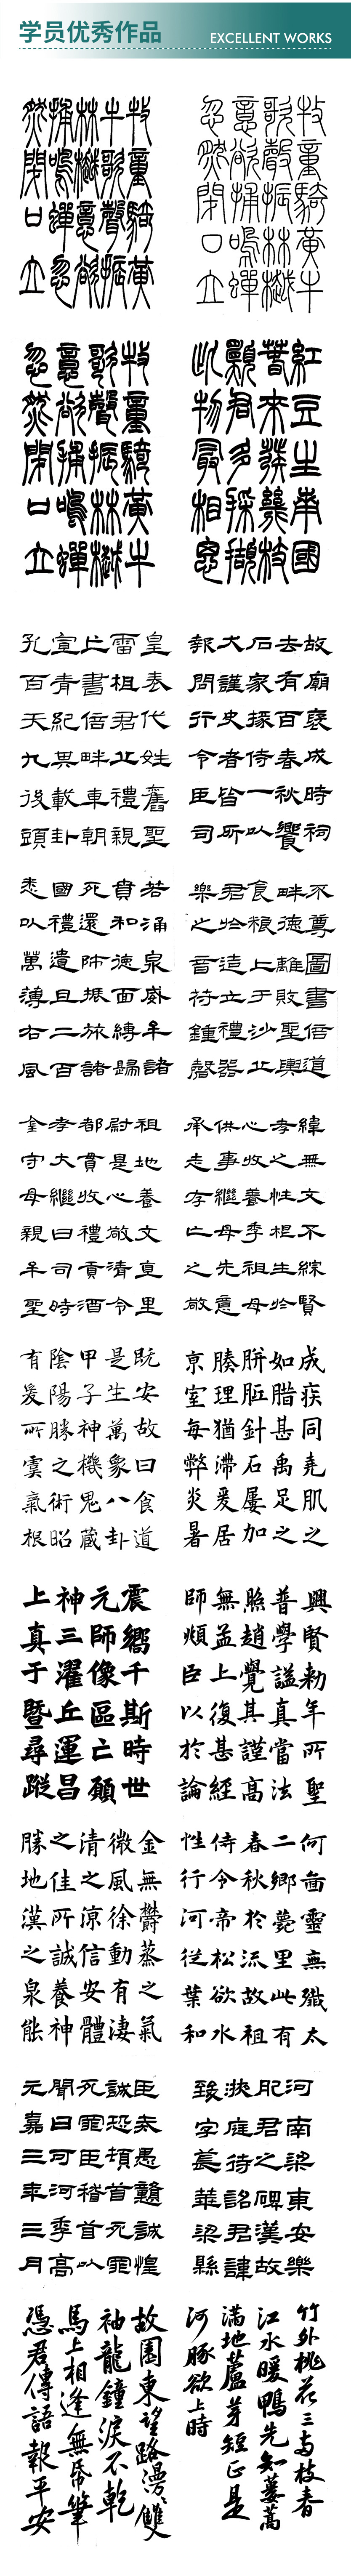 学员优秀作品
EXCELLENT WORKS
牧童騎黃牛
歌聲振林樾
意欲捕鳴蟬
忽然閉口立
牧童騎黃
牛歌聲振
林樾意欲
捕鳴蟬忽
然閉口立
紅豆生南國
春來發幾枝
願君多採擷
此物最相思
牧童騎黃牛
歌聲振林樾
意欲捕鳴蟬
忽然閉口立
故廟褒成時祠
去有百春秋饗
石家掾侍一以
大謹史者皆所
報問行令臣司
皇表代姓舊聖
雷祖君北禮親
上書倍畔車朝
宣青紀其載卦
孔百天九後頭
不尊圖書倍道
畔德離敗聖輿
食粮上于沙北
君於造立禮器
樂之音符鍾磬
若涌泉威牟諸
賁和德面縛歸
死還師振旅諸
國禮遺且二百
悉以萬薄右風
緯無文不綜賢
孝之性根生於
心收養季祖母
供事繼母先意
承志存亡之敬
祖地養文直里
尉是心敬清令
都貫收禮貢酒
孝大繼曰司時
奎守母親牟聖
成疾同堯肌之
如腊甚禹足之
胼胝針石屢加
腠理猶滯爰居
京室每弊炎暑
既安故曰食道
是生萬象八卦
甲子神機鬼藏
陰陽勝之術昭
有爰所虞氣根
興賢勅年所聖
普學謚真當法
照趙覺其謹高
無孟上復甚經
師頫臣以於論
震嚮千斯時世
元師像區亡願
神三濯丘運昌
上真于暨尋蹤
何啚靈無殲太
二鄉薨里此有
春秋於流故祖
侍令帝松欲水
性行河從葉和
金無鬱蒸之氣
微風徐動有淒
清之涼信安體
之佳所誠養神
勝地漢之泉能
河南梁東安樂
肥君之碑漢故
浹庭待詔君諱
致字萇華梁縣
臣太愚戇誠惶
誠恐頓首死罪
死罪臣稽首以
聞曰可河季高
元嘉三年三月
竹外桃花三兩枝春
江水暖鴨先知蔞蒿
滿地蘆芽短正是
河豚欲上時
故園東望路漫漫雙
袖龍鐘淚不乾
馬上相逢無帋筆
憑君傳語報平安